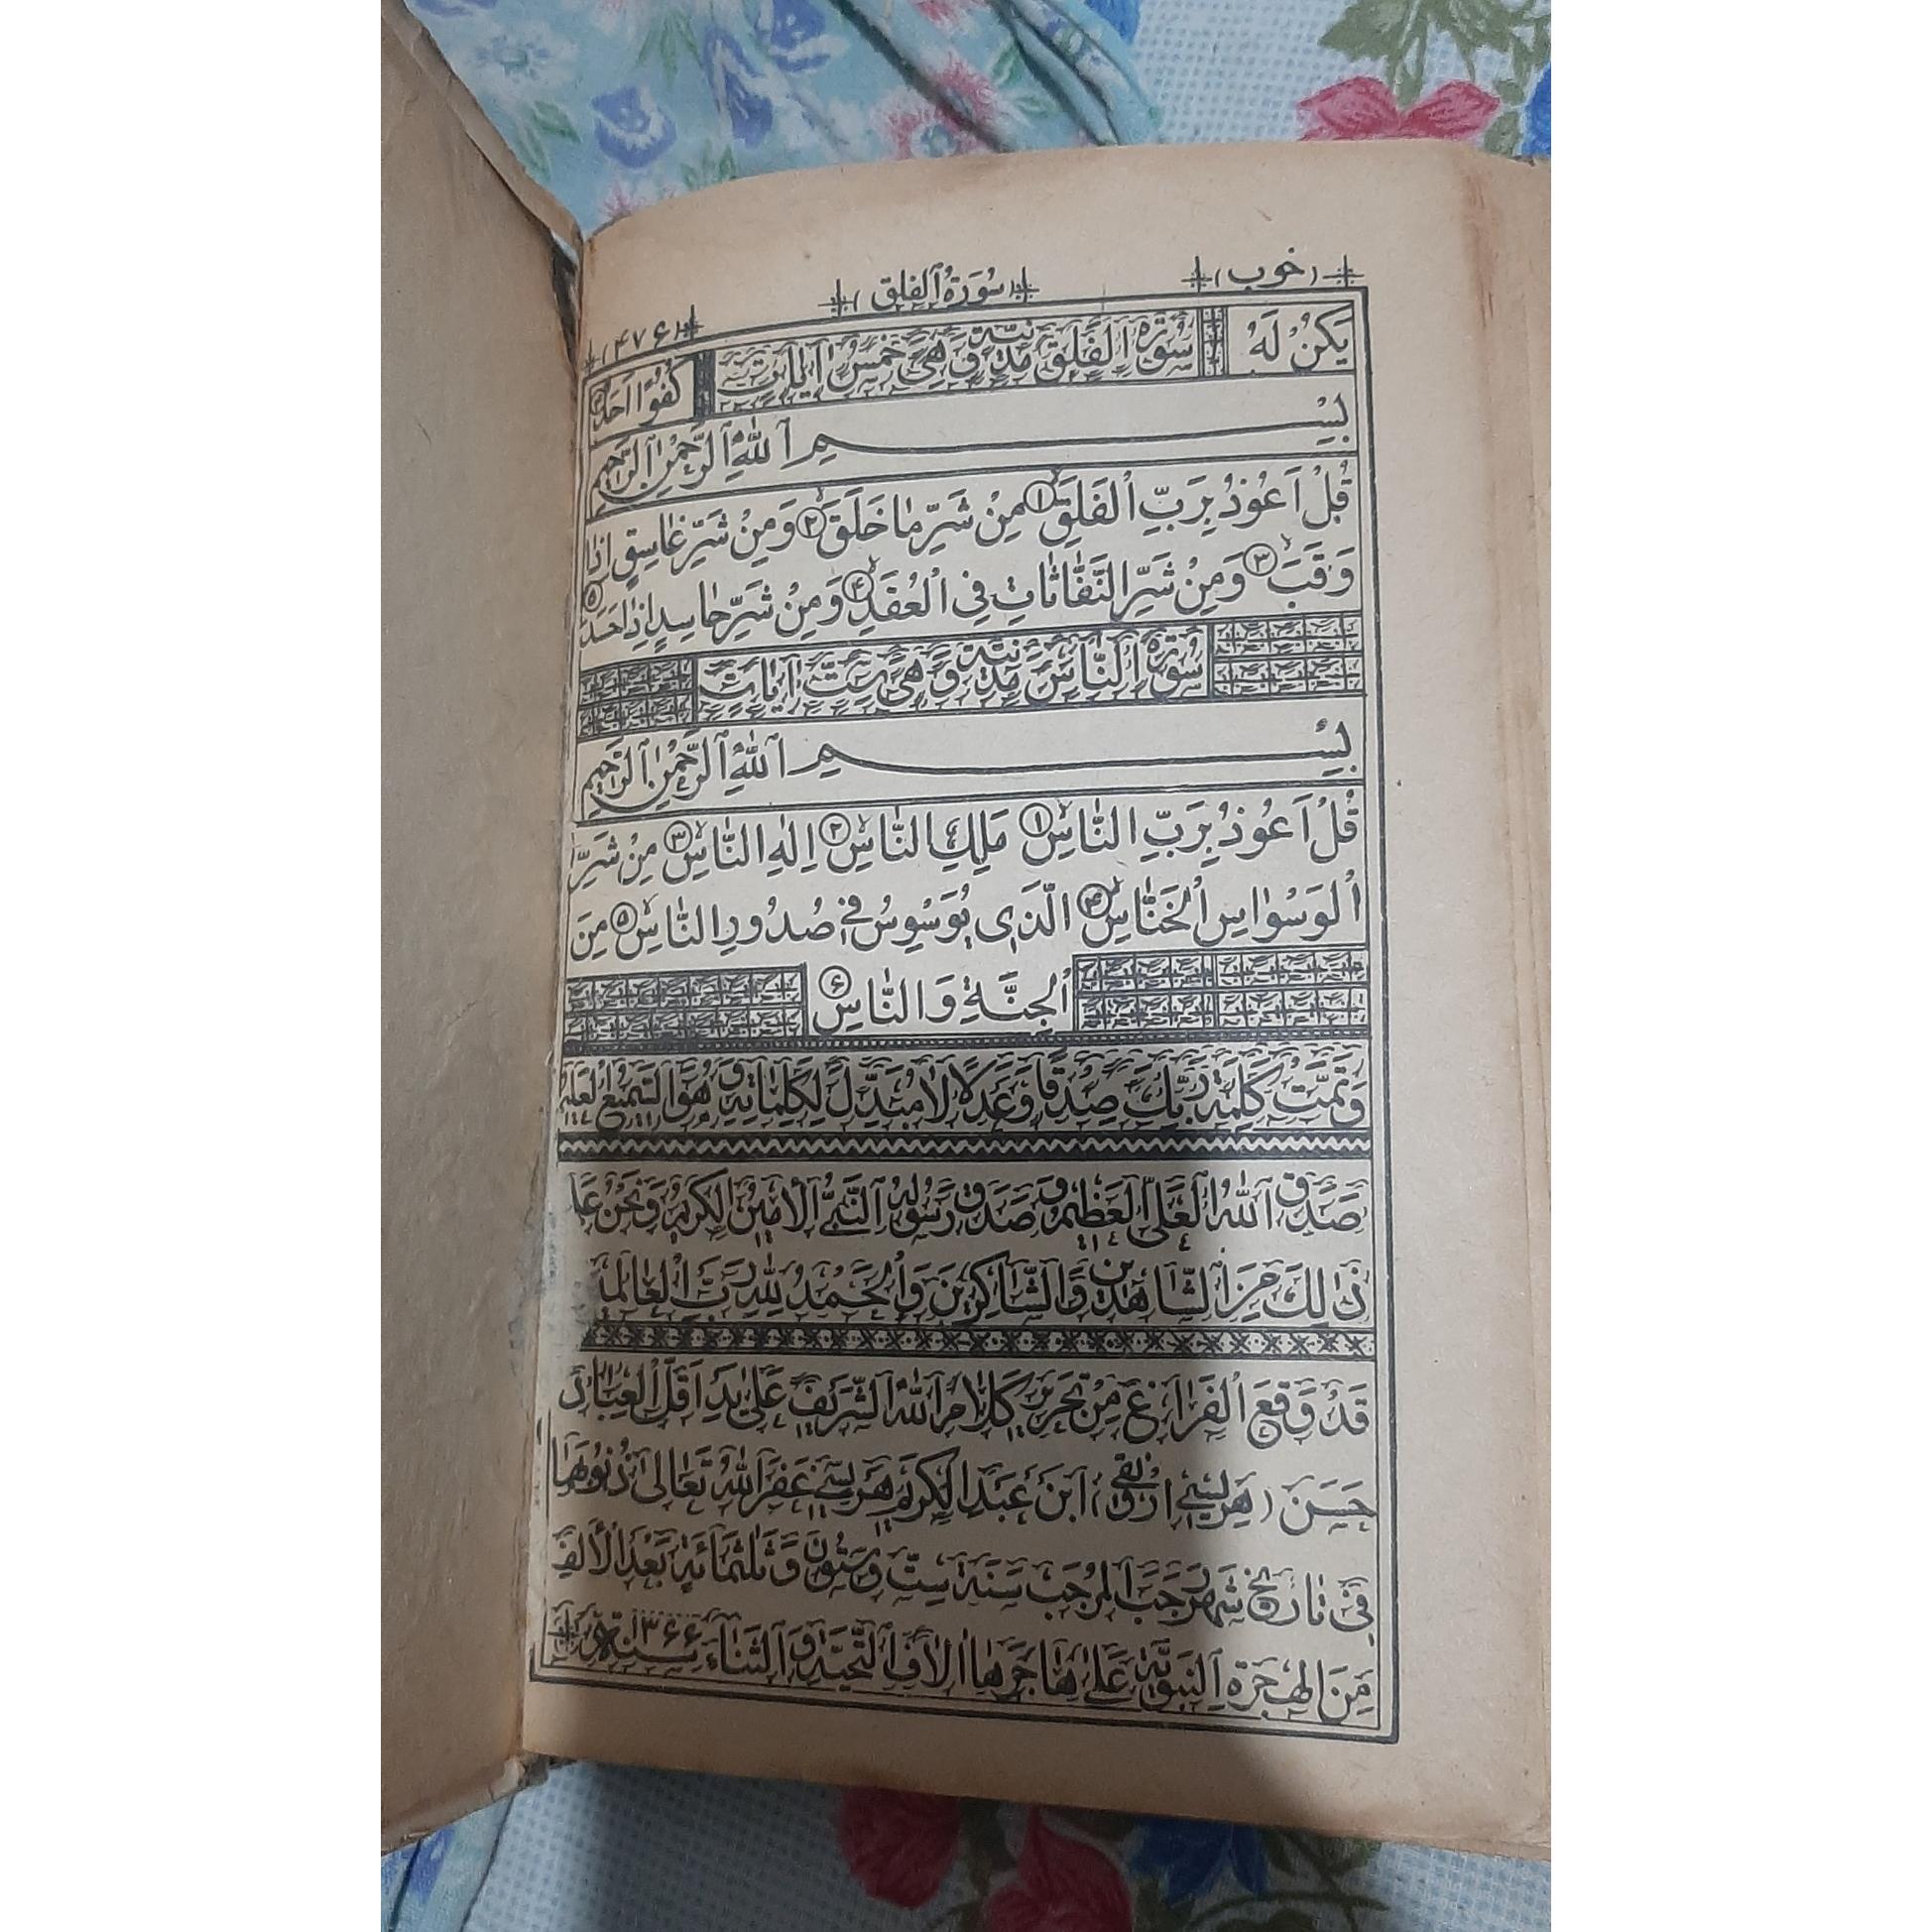 (خوب) (سُورَةُ الفلق) (۴۷۶)
يَكُنْ لَهُ سُورَةُ الْفَلَقِ مَدَنِيَّةٌ وَهِيَ خَمْسُ اٰيَاتٍ كُفُوًا اَحَدٌ
بِسْمِ اللّٰهِ الرَّحْمٰنِ الرَّحِيمِ
قُلْ اَعُوذُ بِرَبِّ الْفَلَقِ ۱ مِنْ شَرِّ مَا خَلَقَ ۲ وَمِنْ شَرِّ غَاسِقٍ اِذَا
وَقَبَ ۳ وَمِنْ شَرِّ النَّفَّاثَاتِ فِي الْعُقَدِ ۴ وَمِنْ شَرِّ حَاسِدٍ اِذَا حَسَدَ ۵
سُورَةُ النَّاسِ مَدَنِيَّةٌ وَهِيَ سِتُّ اٰيَاتٍ
بِسْمِ اللّٰهِ الرَّحْمٰنِ الرَّحِيمِ
قُلْ اَعُوذُ بِرَبِّ النَّاسِ ۱ مَلِكِ النَّاسِ ۲ اِلٰهِ النَّاسِ ۳ مِنْ شَرِّ
الْوَسْوَاسِ الْخَنَّاسِ ۴ الَّذِي يُوَسْوِسُ فِي صُدُورِ النَّاسِ ۵ مِنَ
الْجِنَّةِ وَالنَّاسِ ۶
وَتَمَّتْ كَلِمَةُ رَبِّكَ صِدْقًا وَعَدْلًا لَا مُبَدِّلَ لِكَلِمَاتِهِ وَهُوَ السَّمِيعُ الْعَلِيمُ
صَدَقَ اللّٰهُ الْعَلِيُّ الْعَظِيمُ وَصَدَقَ رَسُولُهُ النَّبِيُّ الْاَمِينُ الْكَرِيمُ وَنَحْنُ عَلٰى
ذٰلِكَ مِنَ الشَّاهِدِينَ وَالشَّاكِرِينَ وَالْحَمْدُ لِلّٰهِ رَبِّ الْعَالَمِينَ
قَدْ وَقَعَ الْفَرَاغُ مِنْ تَحْرِيرِ كَلَامِ اللّٰهِ الشَّرِيفِ عَلٰى يَدِ اَقَلِّ الْعِبَادِ
حَسَنِ (هَرِيسِي اَرْوَنَقِي) ابْنِ عَبْدِ الْكَرِيمِ هَرِيسِي غَفَرَ اللّٰهُ تَعَالٰى ذُنُوبَهُمَا
فِي تَارِيخِ شَهْرِ رَجَبِ الْمُرَجَّبِ سَنَةَ سِتٍّ وَسِتُّونَ وَثَلٰثُمِائَةٍ بَعْدَ الْاَلْفِ
مِنَ الْهِجْرَةِ النَّبَوِيَّةِ عَلٰى هَاجِرِهَا اٰلَافُ التَّحِيَّةِ وَالثَّنَاءِ سنة ۱۳۶۶